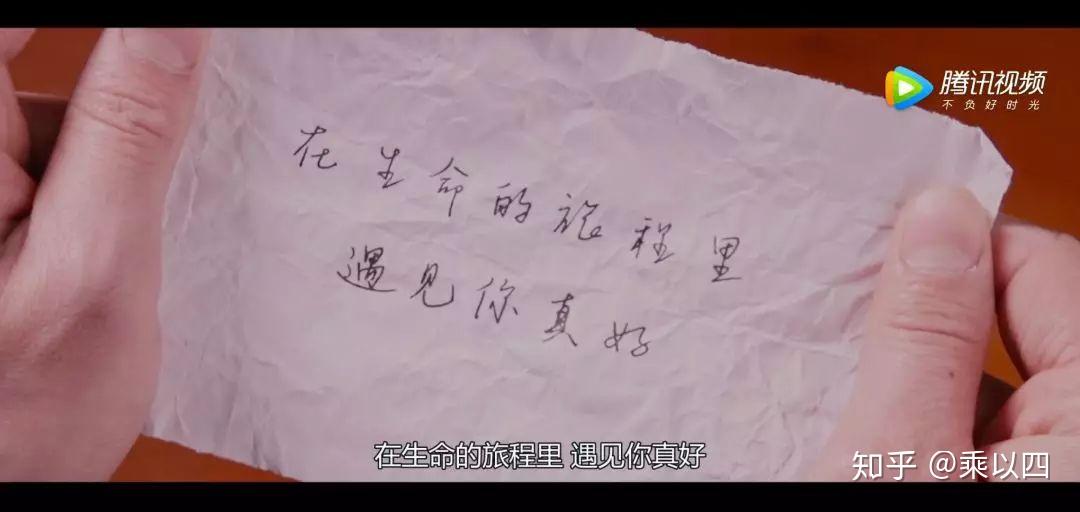 腾讯视频
不负好时光
在生命的旅程里
遇见你真好
在生命的旅程里 遇见你真好
知乎 @乘以四